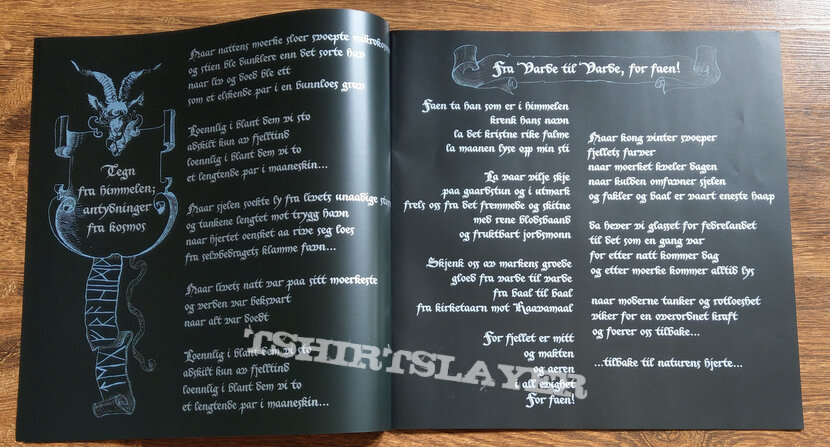 Tegn
fra himmelen;
antydninger
fra kosmos
Naar nattens moerke sloer svoepte mikrokos
og stien ble dunklere enn det sorte hav
naar liv og doed ble ett
som et elskende par i en bunnloes grav
Loennlig i blant dem vi sto
adskilt kun av fjelltind
loennlig i blant dem vi to
et lengtende par i maaneskin...
Naar sjelen soekte ly fra livets unaadige storm
og tankene lengtet mot trygg havn
naar hjertet oensket aa rive seg loes
fra selvbedragets klamme favn...
Naar livets natt var paa sitt moerkeste
og verden var beksvart
naar alt var doedt
Loennlig i blant dem vi sto
adskilt kun av fjelltind
loennlig i blant dem vi to
et lengtende par i maaneskin...
Fra Varde til Varde, for faen!
Faen ta han som er i himmelen
krenk hans navn
la det kristne rike falme
la maanen lyse opp min sti
La vaar vilje skje
paa gaardstun og i utmark
frels oss fra det fremmede og skitne
med rene blodsbaand
og fruktbart jordsmonn
Skjenk oss av markens groede
gloed fra varde til varde
fra baal til baal
fra kirketaarn mot Haavamaal
For fjellet er mitt
og makten
og aeren
i all evighet
For faen!
Naar kong vinter svoeper
fjellets farver
naar moerket kveler dagen
naar kulden omfavner sjelen
og fakler og baal er vaart eneste haap
da hever vi glasset for fedrelandet
til det som en gang var
for etter natt kommer dag
og etter moerke kommer alltid lys
naar moderne tanker og rotloeshet
viker for en overordnet kraft
og foerer oss tilbake...
...tilbake til naturens hjerte...
TSHIRTSLAYER